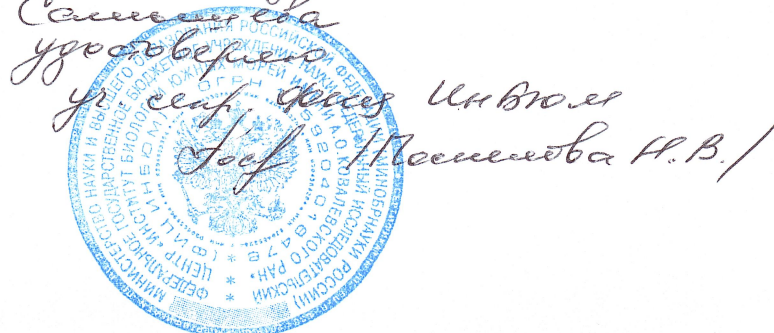 удостоверяю
уч. секр. ФИЦ ИнБЮМ
/ Н.В./
МИНИСТЕРСТВО НАУКИ И ВЫСШЕГО ОБРАЗОВАНИЯ РОССИЙСКОЙ ФЕДЕРАЦИИ (МИНОБРНАУКИ РОССИИ)
ФЕДЕРАЛЬНОЕ ГОСУДАРСТВЕННОЕ БЮДЖЕТНОЕ УЧРЕЖДЕНИЕ НАУКИ ФЕДЕРАЛЬНЫЙ ИССЛЕДОВАТЕЛЬСКИЙ
ЦЕНТР «ИНСТИТУТ БИОЛОГИИ ЮЖНЫХ МОРЕЙ ИМЕНИ А.О. КОВАЛЕВСКОГО РАН»
(ФИЦ ИНБЮМ) * ОГРН